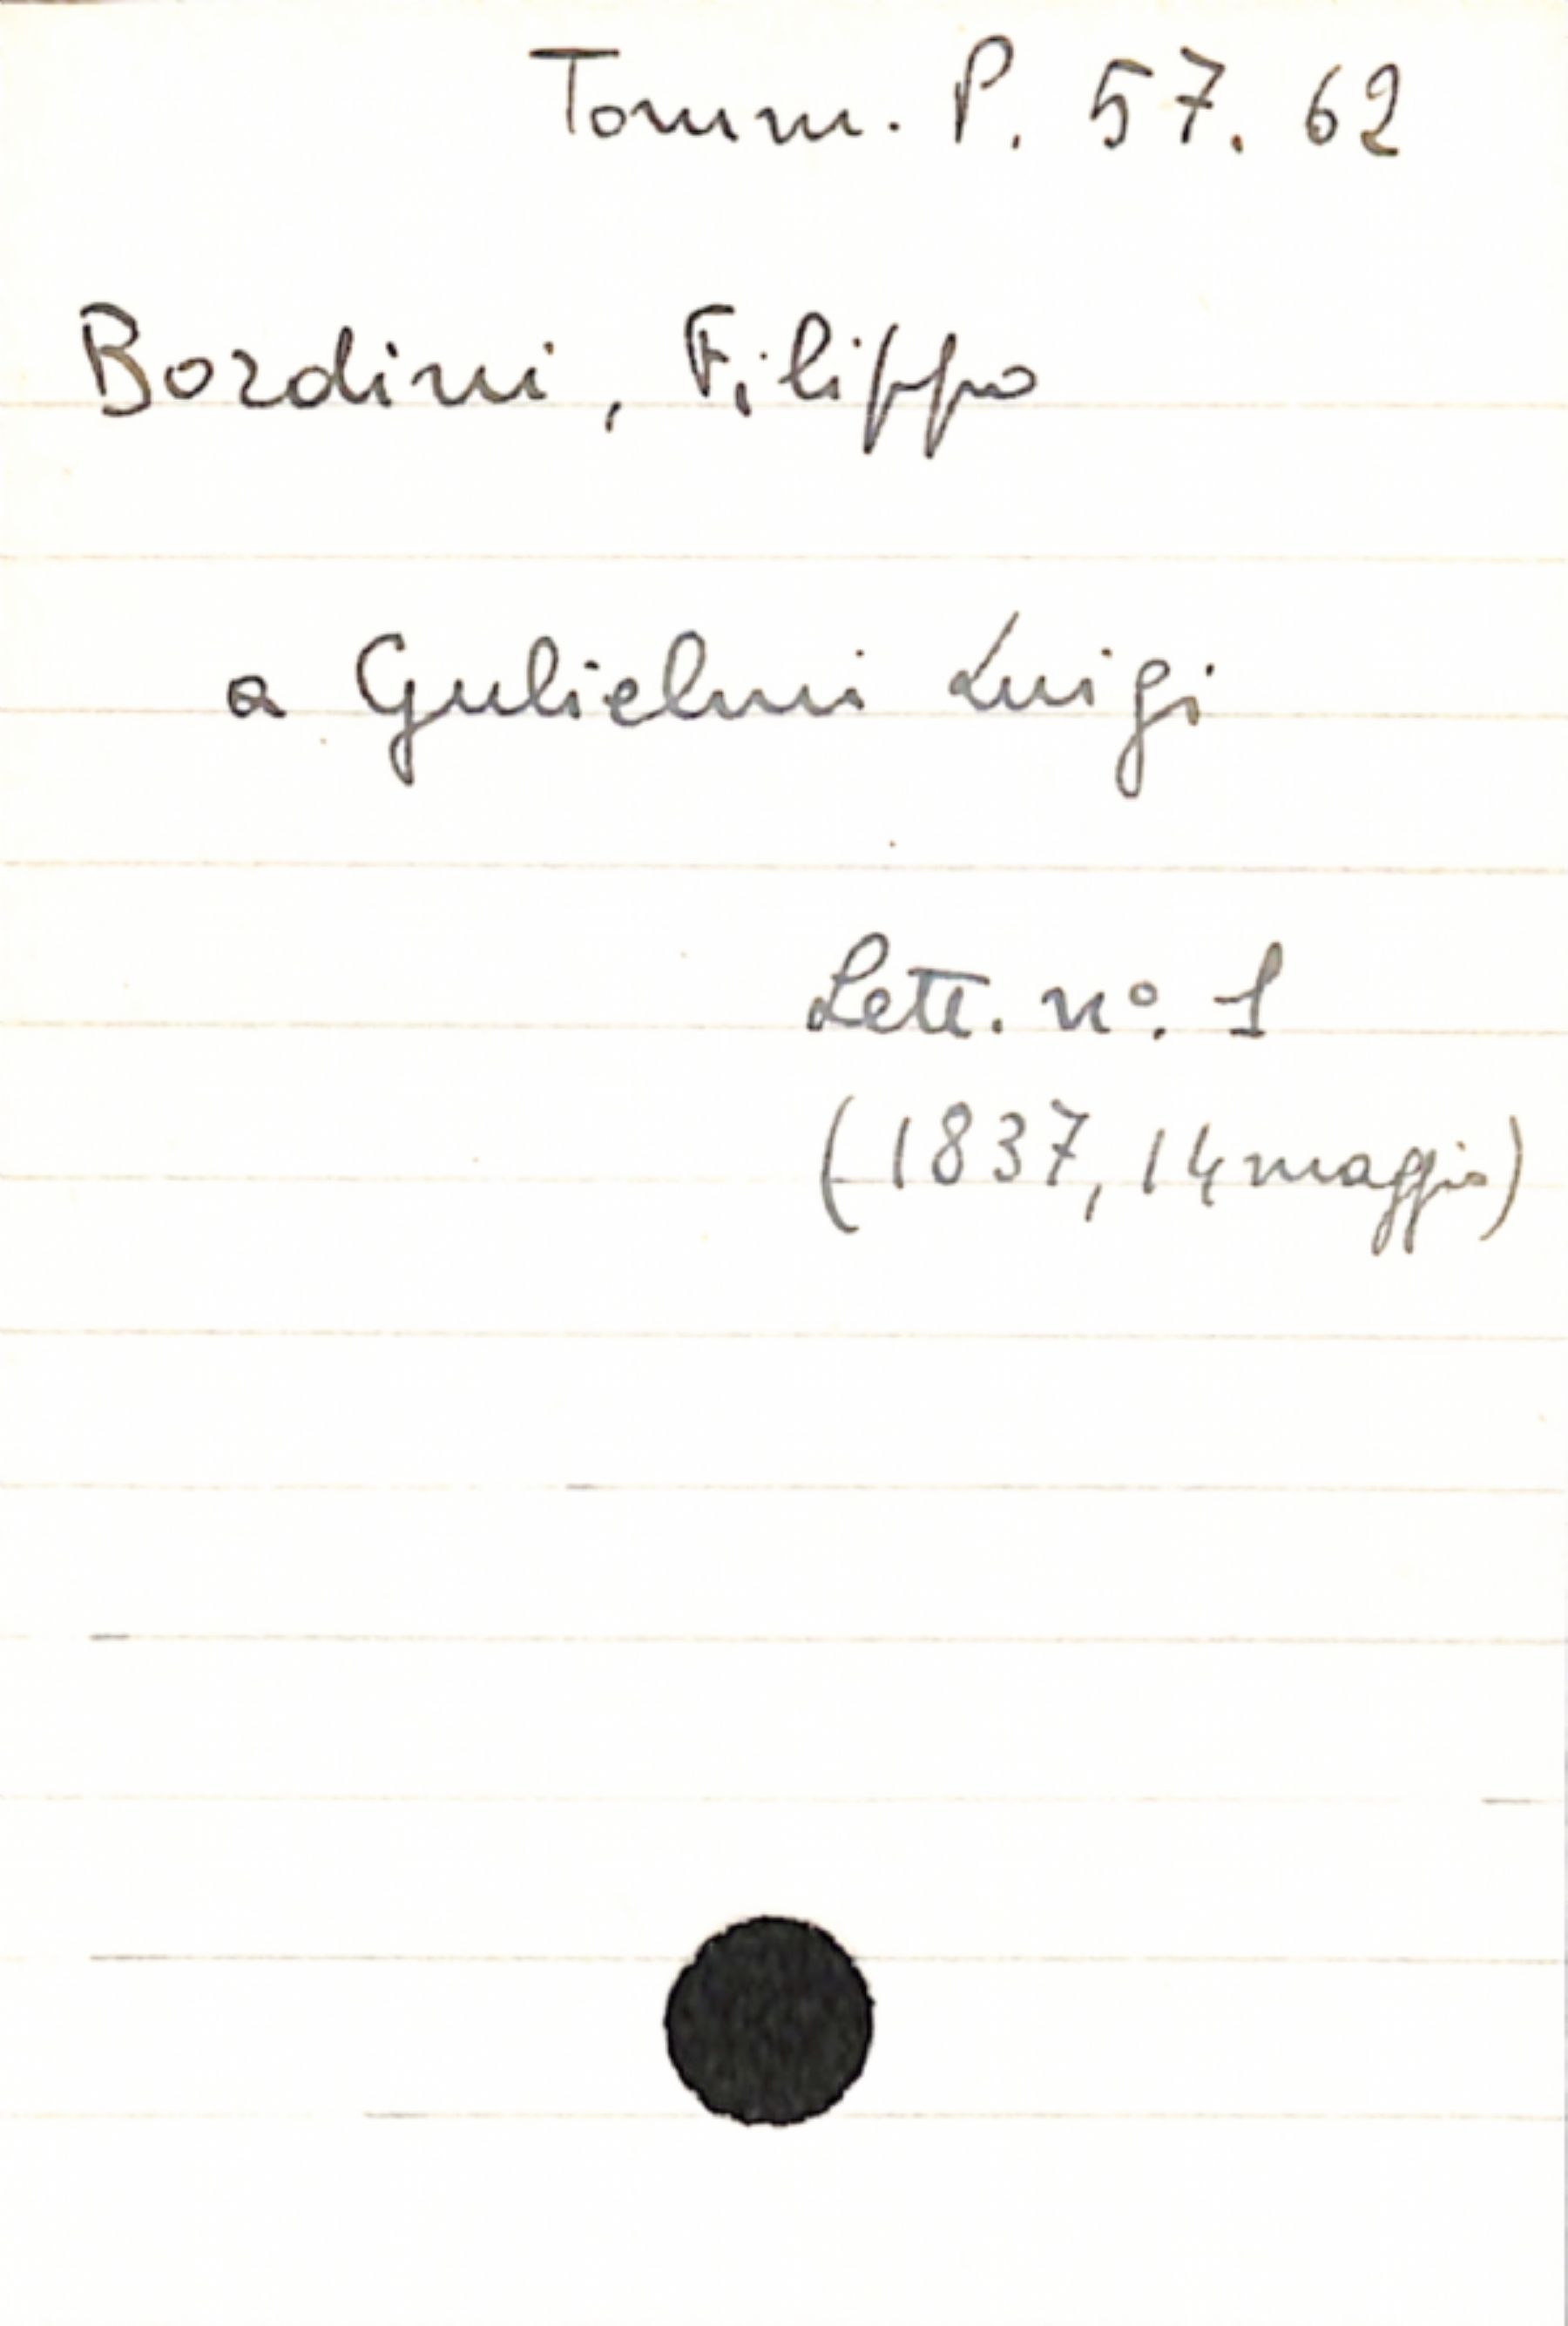 Tomm. P. 57. 62
Bordini, Filippo
a Gulielmi Luigi
Lett. nº. 1
(1837, 14 maggio)